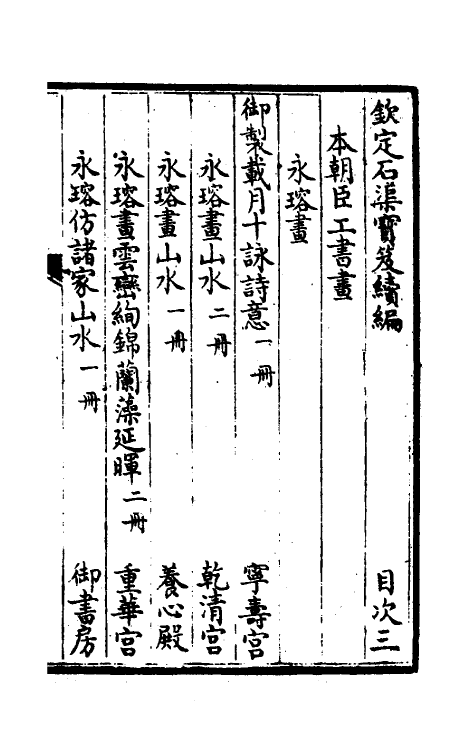 欽定石渠寶笈續編 目次三
本朝臣工書畫
永瑢畫
御製載月十詠詩意一冊 寧壽宮
永瑢畫山水二冊 乾清宮
永瑢畫山水一冊 養心殿
永瑢畫雲巒絢錦蘭藻延暉二冊 重華宮
永瑢仿諸家山水一冊 御書房